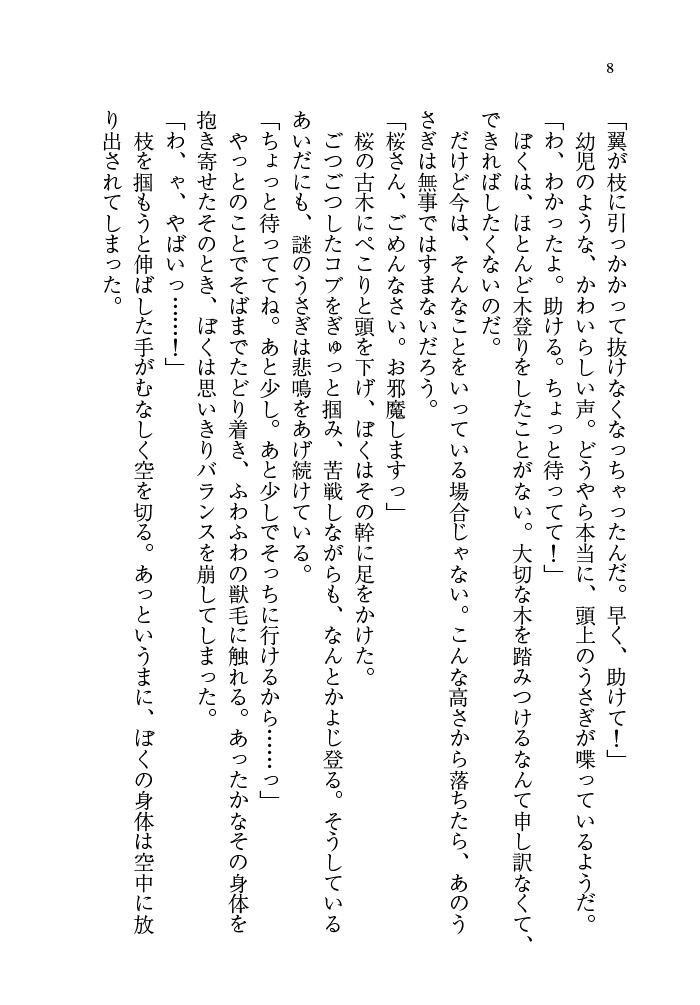 8
「翼が枝に引っかかって抜けなくなっちゃったんだ。早く、助けて！」
　幼児のような、かわいらしい声。どうやら本当に、頭上のうさぎが喋っているようだ。
「わ、わかったよ。助ける。ちょっと待ってて！」
　ぼくは、ほとんど木登りをしたことがない。大切な木を踏みつけるなんて申し訳なくて、
できればしたくないのだ。
　だけど今は、そんなことをいっている場合じゃない。こんな高さから落ちたら、あのう
さぎは無事ではすまないだろう。
「桜さん、ごめんなさい。お邪魔しますっ」
　桜の古木にぺこりと頭を下げ、ぼくはその幹に足をかけた。
　ごつごつしたコブをぎゅっと掴み、苦戦しながらも、なんとかよじ登る。そうしている
あいだにも、謎のうさぎは悲鳴をあげ続けている。
「ちょっと待っててね。あと少し。あと少しでそっちに行けるから……っ」
　やっとのことでそばまでたどり着き、ふわふわの獣毛に触れる。あったかなその身体を
抱き寄せたそのとき、ぼくは思いきりバランスを崩してしまった。
「わ、ゃ、やばいっ……！」
　枝を掴もうと伸ばした手がむなしく空を切る。あっというまに、ぼくの身体は空中に放
り出されてしまった。